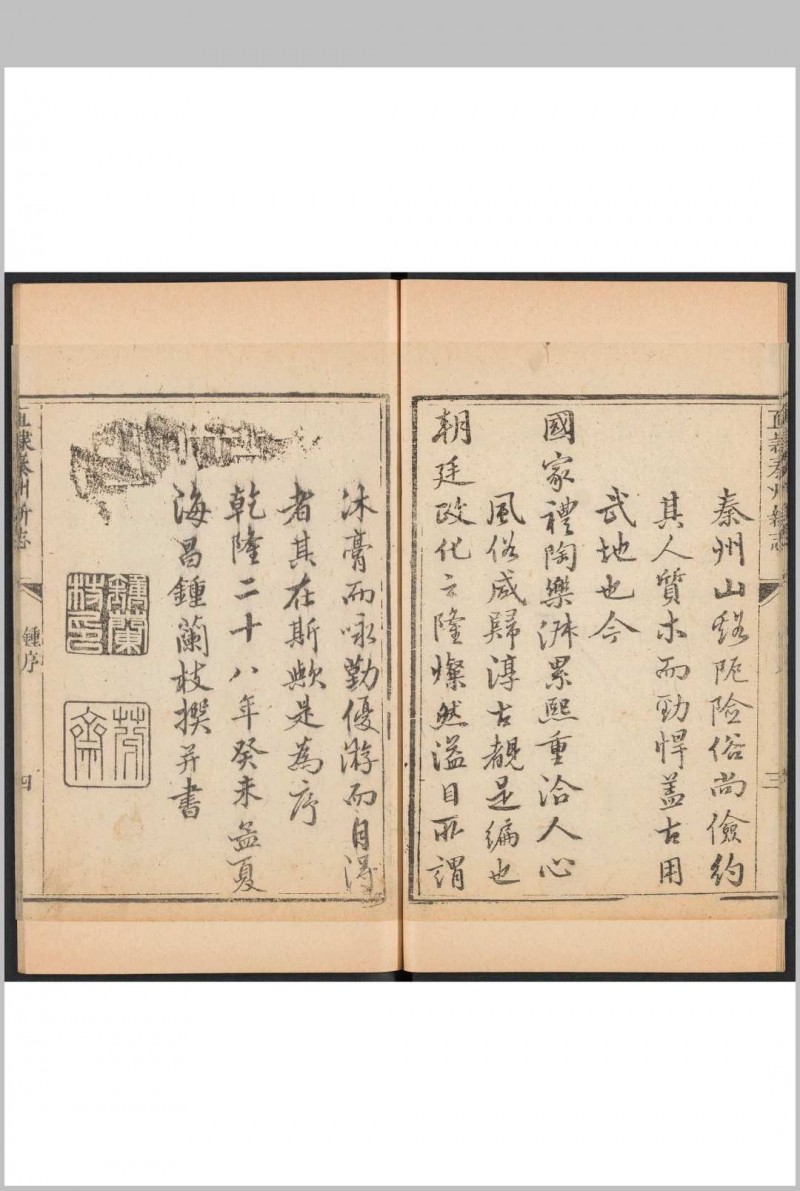 直隸秦州新志
三
秦州山谿阨險俗尚儉約
其人質木而勁悍蓋古用
武地也今
國家禮陶樂淑累熙重洽人心
風俗咸歸淳古覩是編也
朝廷政化之隆燦然溢目所謂
沐膏而咏勤優游而自得
者其在斯歟是為序
乾隆二十八年癸未孟夏
海昌鍾蘭枝撰并書
鍾蘭枝印
芬齋
直隸秦州新志
鍾序
四